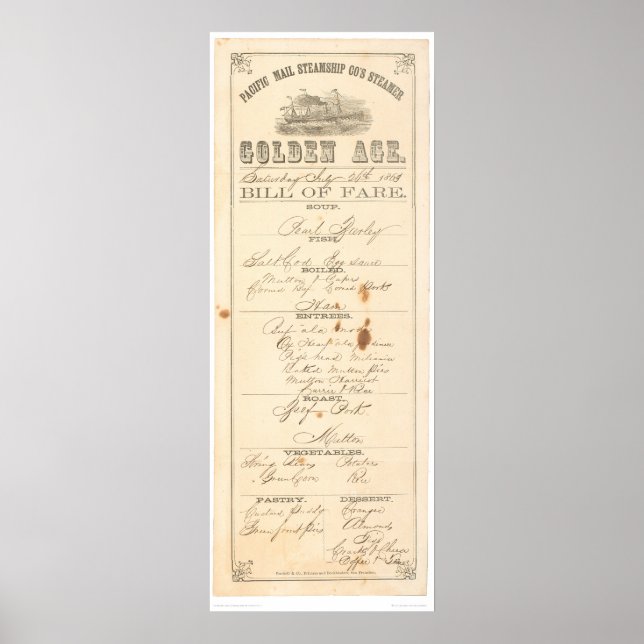 PACIFIC MAIL STEAMSHIP CO'S STEAMER
GOLDEN AGE.
Saturday July 1863
BILL OF FARE.
SOUP.
Pearl Barley
FISH.
Salt Cod Egg sauce
BOILED.
Mutton & Capers
Corned Beef Corned Pork
Ham
ENTREES.
Beef ala mode
Pigs head
Baked Mutton pies
Mutton Harricot
Currie & Rice
ROAST.
Beef Pork.
Mutton
VEGETABLES.
String Beans Potatoes
Green Corn Rice
PASTRY. DESSERT.
Custard Pudds Oranges
Green fruit pies Almonds
Figs
Crackers & Cheese
Coffee & Tea